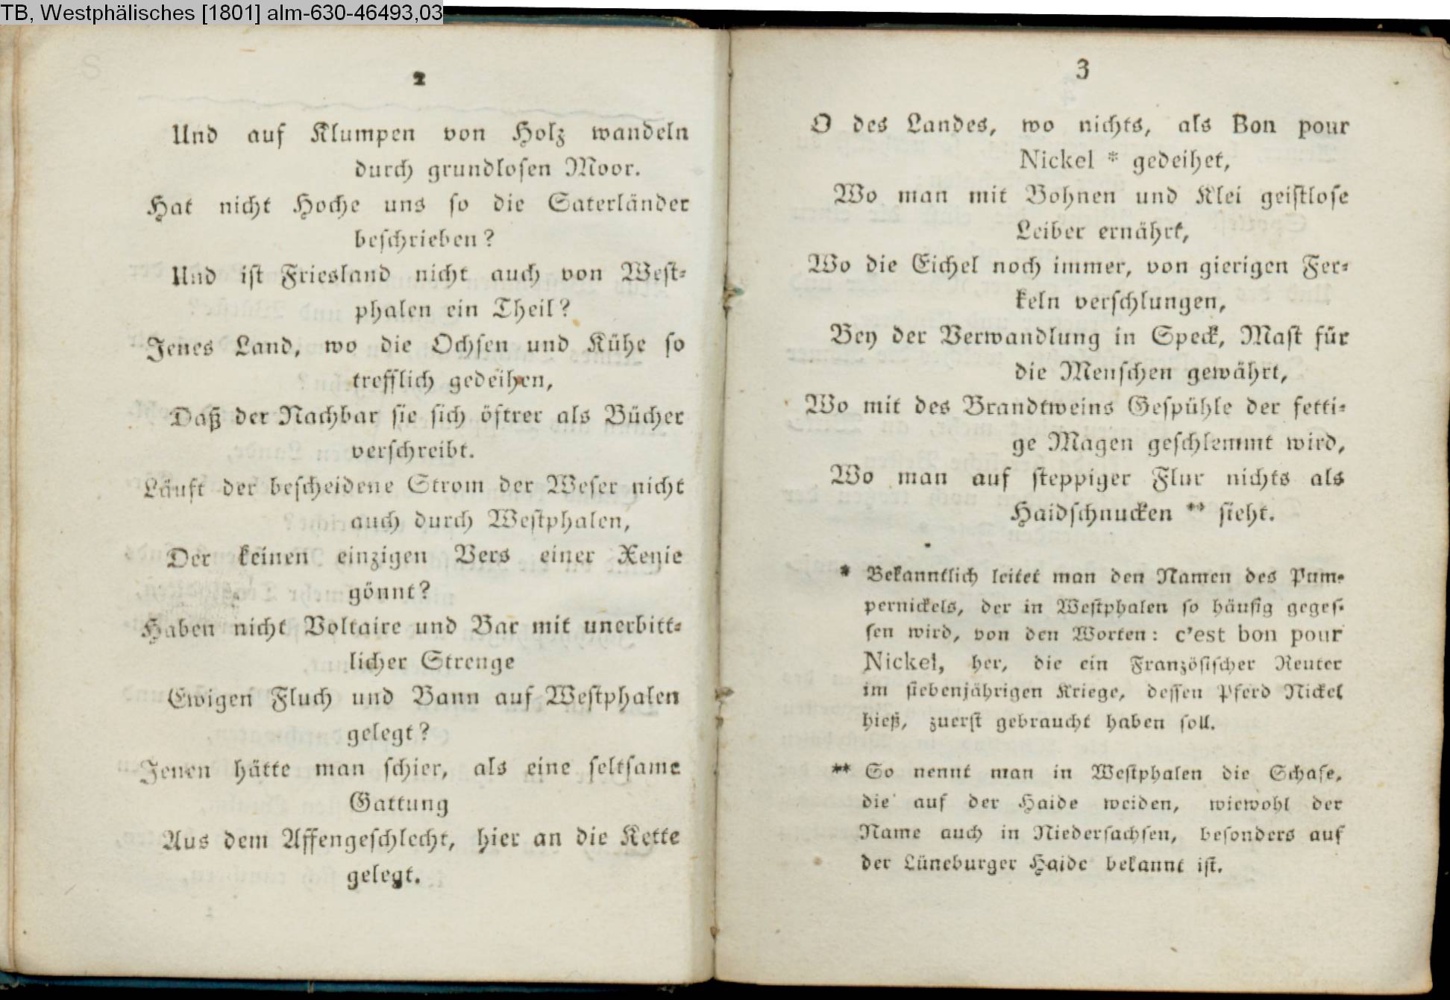 TB, Westphälisches [1801] alm-630-46493,03
2
Und auf Klumpen von Holz wandeln
durch grundlosen Moor.
Hat nicht Hoche uns so die Saterländer
beschrieben?
Und ist Friesland nicht auch von West-
phalen ein Theil?
Jenes Land, wo die Ochsen und Kühe so
trefflich gedeihen,
Daß der Nachbar sie sich öftrer als Bücher
verschreibt.
Läuft der bescheidene Strom der Weser nicht
auch durch Westphalen,
Der keinen einzigen Vers einer Xenie
gönnt?
Haben nicht Voltaire und Bar mit unerbitt-
licher Strenge
Ewigen Fluch und Bann auf Westphalen
gelegt?
Jenen hätte man schier, als eine seltsame
Gattung
Aus dem Affengeschlecht, hier an die Kette
gelegt.
3
O des Landes, wo nichts, als Bon pour
Nickel * gedeihet,
Wo man mit Bohnen und Klei geistlose
Leiber ernährt,
Wo die Eichel noch immer, von gierigen Fer-
keln verschlungen,
Bey der Verwandlung in Speck, Mast für
die Menschen gewährt,
Wo mit des Brandtweins Gespühle der fetti-
ge Magen geschlemmt wird,
Wo man auf steppiger Flur nichts als
Haidschnucken ** sieht.
* Bekanntlich leitet man den Namen des Pum-
pernickels, der in Westphalen so häufig geges-
sen wird, von den Worten: c'est bon pour
Nickel, her, die ein Französischer Reuter
im siebenjährigen Kriege, dessen Pferd Nickel
hieß, zuerst gebraucht haben soll.
** So nennt man in Westphalen die Schafe,
die auf der Haide weiden, wiewohl der
Name auch in Niedersachsen, besonders auf
der Lüneburger Haide bekannt ist.